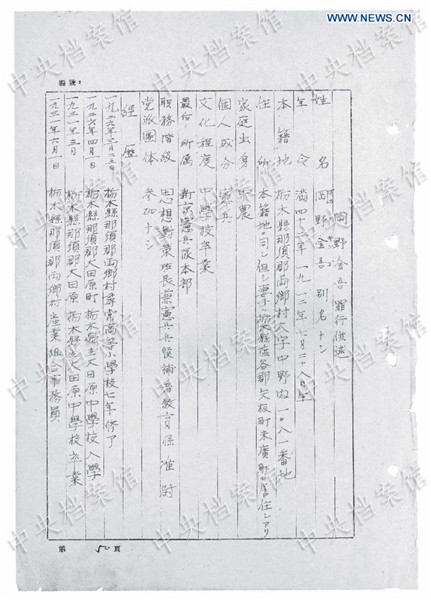 WWW.NEWS.CN
岡野金吾 罪行供述
姓名 岡野金吾 別名ナシ
年令 満四十二年 一九一二年七月二十八日生
本籍地 栃木縣那須郡両郷村大字中野内一〇八一番地
住所 本籍地ニ同シ但シ妻子ハ栃木縣塩谷郡矢板町末廣町ニ居住シアリ
家庭出身 農
個人成分 憲兵
文化程度 中學校卒業
最后ノ所属 新京憲兵隊本部
職務階級 思想對策班長兼憲兵兵候補者教育係 准尉
党派團体 参加ナシ
経歴
一九二六年三月二五日 栃木縣那須郡両郷村尋常高等小學校七年修了
一九二六年四月一日 栃木縣那須郡大田原町 栃木縣立大田原中學校入學
一九三一年三月 栃木縣那須郡大田原 栃木縣立大田原中學校卒業
一九三一年六月一日 栃木縣那須郡両郷村産業組合事務員
第 50 頁
中央档案馆